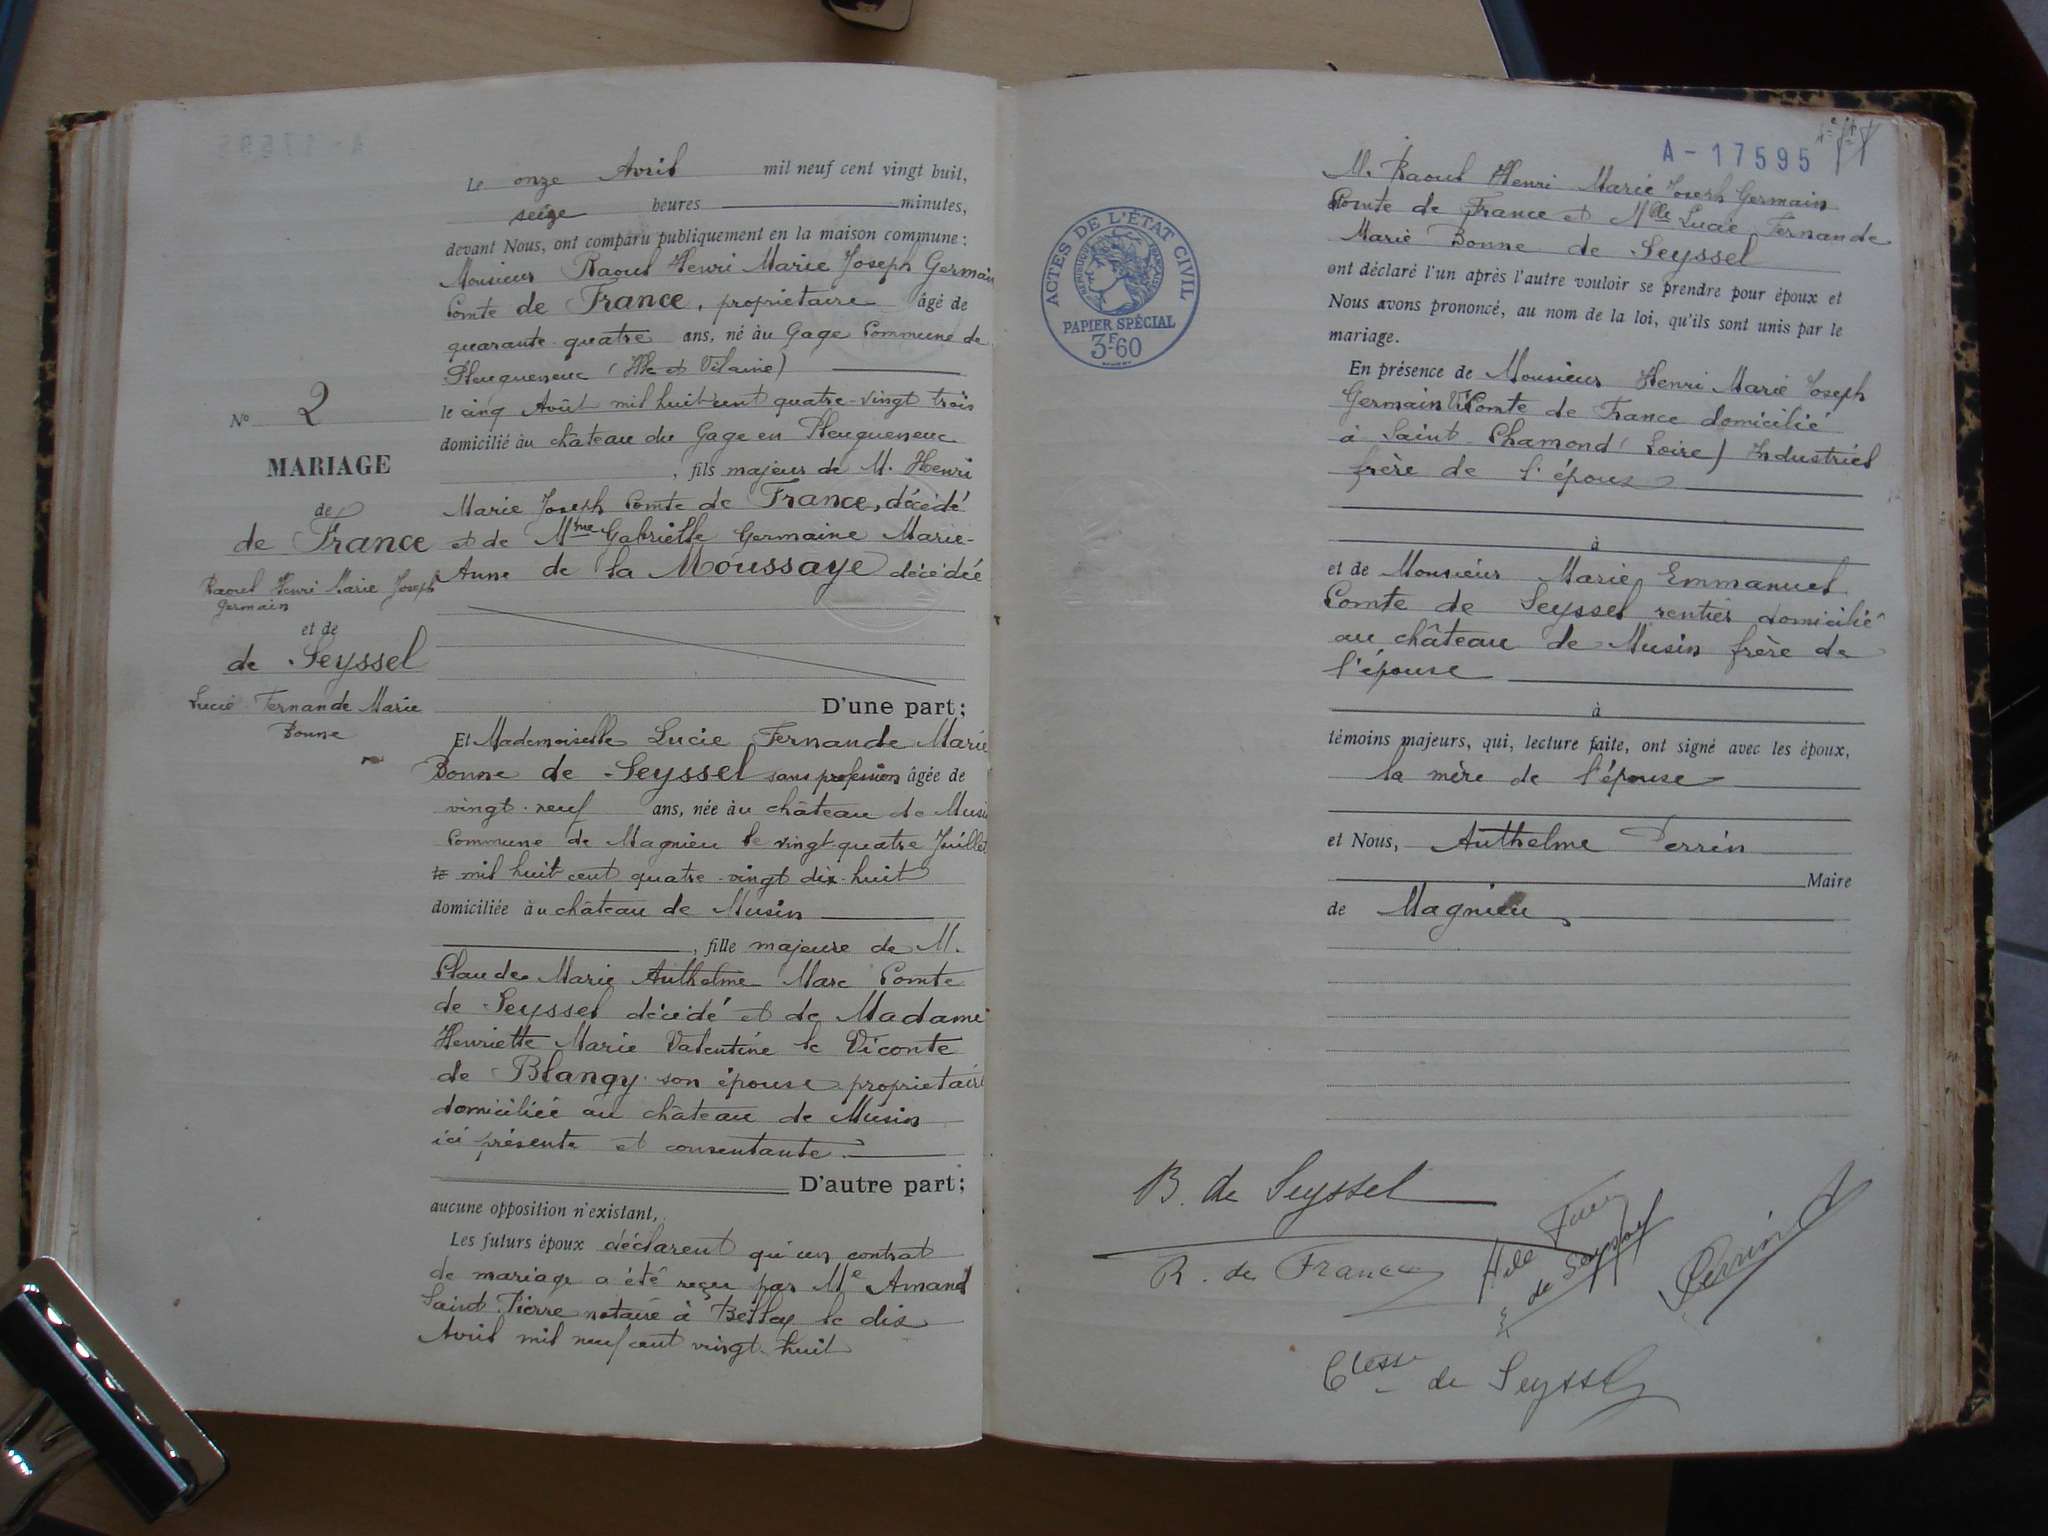 Nº 2
MARIAGE
de
de France
Raoul Henri Marie Joseph
Germain
et de
de Seyssel
Lucie Fernande Marie
Bonne
Le onze Avril mil neuf cent vingt huit,
seize heures minutes,
devant Nous, ont comparu publiquement en la maison commune :
Monsieur Raoul Henri Marie Joseph Germain
Comte de France, propriétaire âgé de
quarante quatre ans, né au Gage Commune de
Pleugueneuc (Ille et Vilaine)
le cinq Août mil huit cent quatre-vingt trois
domicilié au château du Gage en Pleugueneuc
, fils majeur de M. Henri
Marie Joseph Comte de France, décédé
et de Mme Gabrielle Germaine Marie-
Anne de la Moussaye décédée
D'une part ;
Et Mademoiselle Lucie Fernande Marie
Bonne de Seyssel sans profession âgée de
vingt-neuf ans, née au château de Musin
Commune de Magnieu le vingt-quatre Juillet
mil huit cent quatre-vingt dix-huit
domiciliée au château de Musin
, fille majeure de M.
Claude Marie Anthelme Marc Comte
de Seyssel décédé et de Madame
Henriette Marie Valentine le Viconte
de Blangy son épouse propriétaire
domiciliée au château de Musin
ici présente et consentante.
D'autre part ;
aucune opposition n'existant,
Les futurs époux déclarent qu'un contrat
de mariage a été reçu par Me Amand
Saint-Pierre notaire à Belley le dix
Avril mil neuf cent vingt-huit
A-17595
M. Raoul Henri Marie Joseph Germain
Comte de France et Mlle Lucie Fernande
Marie Bonne de Seyssel
ont déclaré l'un après l'autre vouloir se prendre pour époux et
Nous avons prononcé, au nom de la loi, qu'ils sont unis par le
mariage.
ACTES DE L'ÉTAT CIVIL
RÉPUBLIQUE FRANÇAISE
PAPIER SPÉCIAL
3F60
En présence de Monsieur Henri Marie Joseph
Germain Vicomte de France domicilié
à Saint-Chamond (Loire) Industriel
frère de l'époux
à
et de Monsieur Marie Emmanuel
Comte de Seyssel rentier domicilié
au château de Musin frère de
l'épouse
à
témoins majeurs, qui, lecture faite, ont signé avec les époux,
la mère de l'épouse
et Nous, Anthelme Perrin
Maire
de Magnieu
B. de Seyssel
R. de France
de Seyssel
Perrin
Ctesse de Seyssel